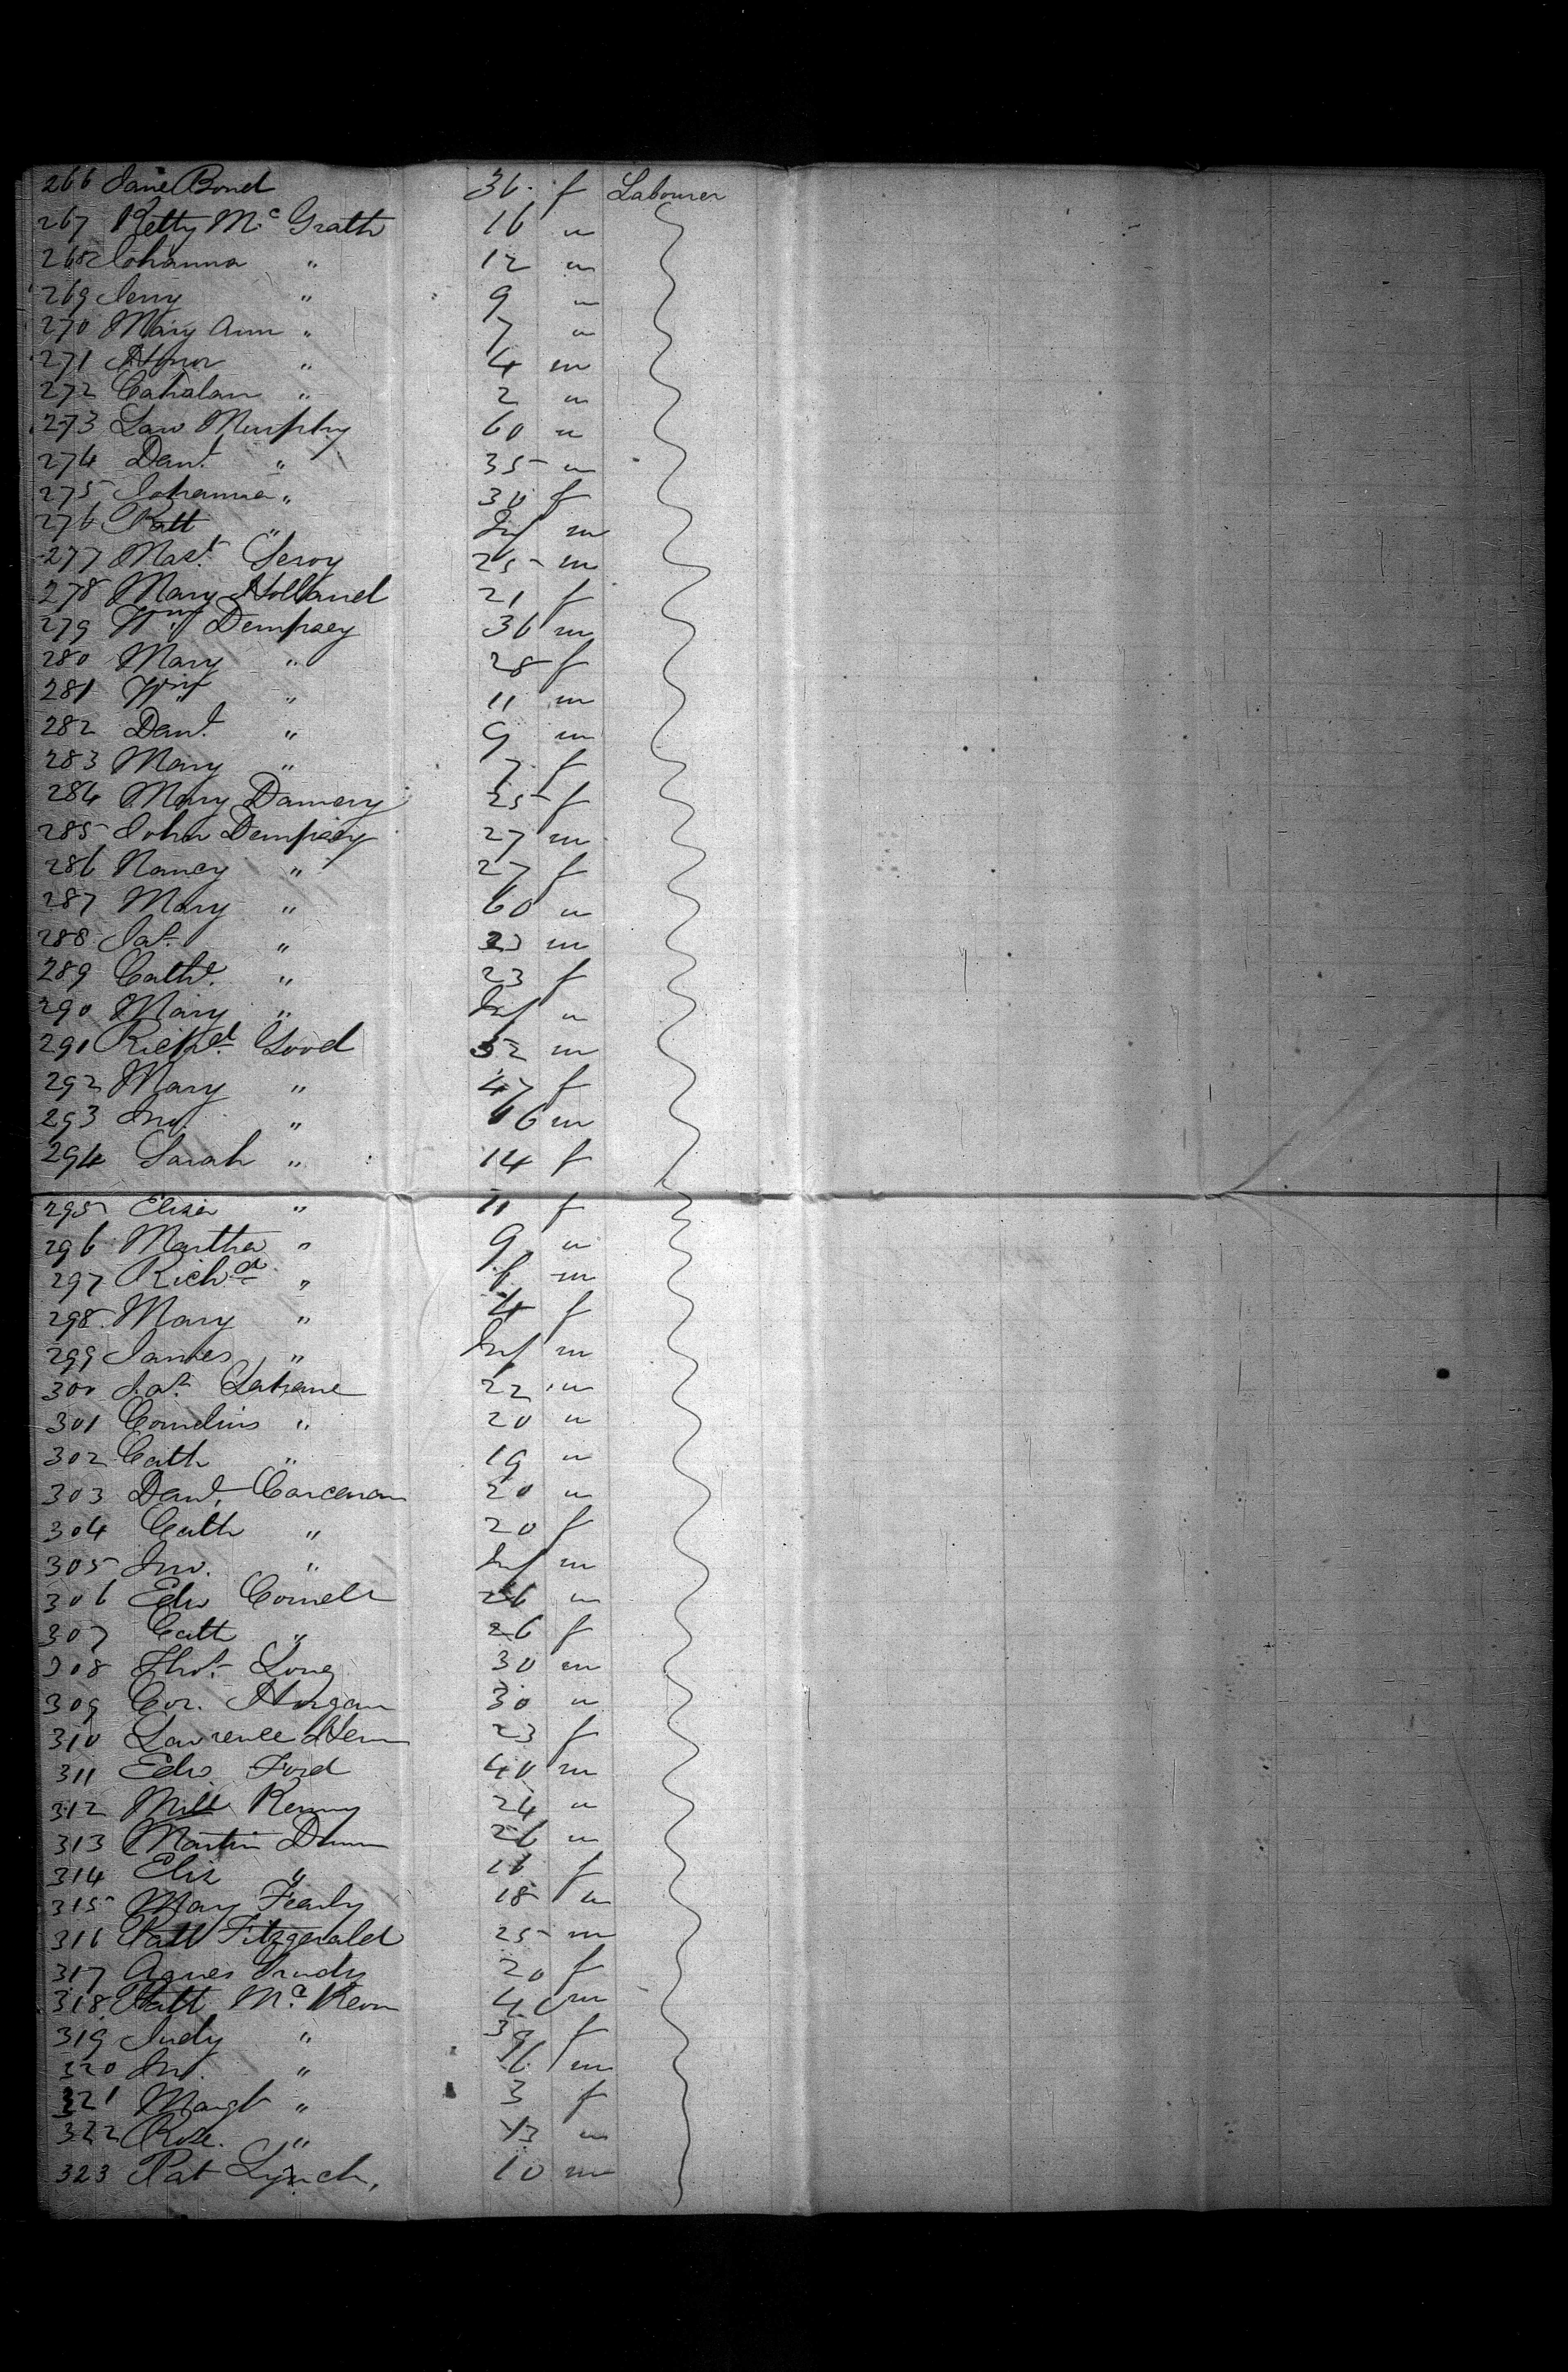 266 Jane Bond 36 f Labourer
267 Ketty Mc Grath 16 "
268 Johanna " 12 "
269 Jerry " 9 "
270 Mary Ann " 7 "
271 Honor " 4 m
272 Cahalan " 2 "
273 Law Murphy 60 "
274 Danl. " 35 "
275 Johanna " 30 f
276 Patt " Inf m
277 Mast. Leroy 25 m
278 Mary Holland 21 f
279 Wm Dempsey 36 m
280 Mary " 28 f
281 Wm " 11 m
282 Danl. " 9 m
283 Mary " 7 f
284 Mary Damery 25 f
285 John Dempsey 27 m
286 Nancy " 27 f
287 Mary " 60 "
288 Jas. " 23 m
289 Cathe. " 23 f
290 Mary " Inf "
291 Richd. Good 52 m
292 Mary " 47 f
293 Jno. " 16 m
294 Sarah " 14 f
295 Eliza " 11 f
296 Martha " 9 "
297 Richd. " 6 m
298 Mary " 4 f
299 James " Inf m
300 Jas. Lahane 22 "
301 Cornelius " 20 "
302 Cath " 19 "
303 Danl. Corceran 20 "
304 Cath " 20 f
305 Jno. " Inf m
306 Edw Cornell 26 "
307 Cath " 26 f
308 Thos. Long 30 m
309 Cor. Horgan 30 "
310 Lawrence Hern 23 f
311 Edw. Ford 40 m
312 Mill Kenny 24 "
313 Martin Dunn 26 "
314 Eliz " 16 f
315 Mary Fearly 18 "
316 Patt Fitzgerald 25 m
317 Agnes 20 f
318 Patt Mc. Keon 40 m
319 Judy " 39 f
320 Jno. " m
321 Margt " 3 f
322 Rose. " 13 "
323 Pat Lynch, 10 m